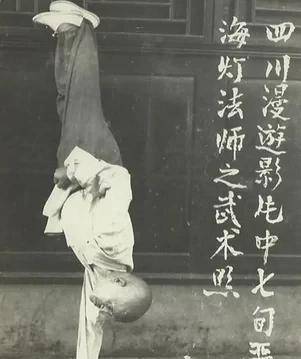 四川漫游影片中七旬
海灯法师之武术照